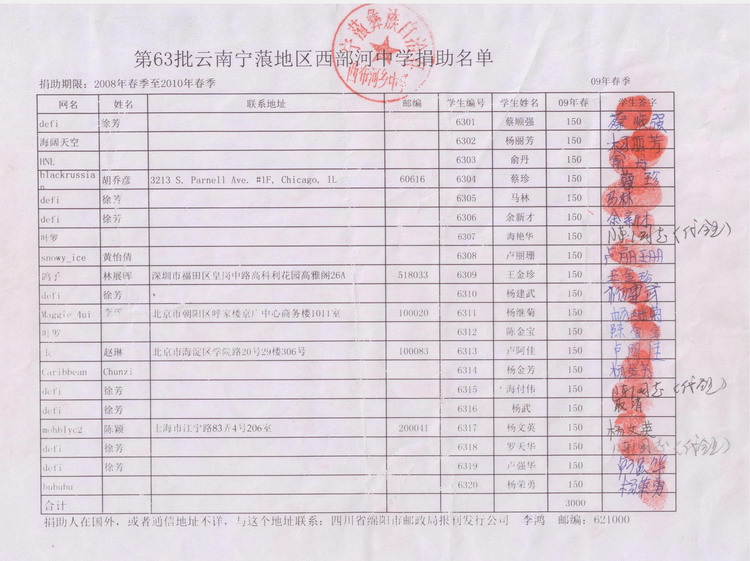 第63批云南宁蒗地区西部河中学捐助名单
捐助期限：2008年春季至2010年春季 09年春季
网名 姓名 联系地址 邮编 学生编号 学生姓名 09年春 学生签字
defi 徐芳 6301 蔡顺强 150 蔡顺强
海阔天空 6302 杨丽芳 150 杨丽芳
HNL 6303 俞丹 150 俞丹
blackrussian 胡乔彦 3213 S. Parnell Ave. #1F, Chicago, IL 60616 6304 蔡珍 150
defi 徐芳 6305 马林 150 马林
defi 徐芳 6306 余新才 150 余新才
叶罗 6307 海艳华 150
snowy_ice 黄怡倩 6308 卢丽珊 150 卢丽珊
鸽子 林展晖 深圳市福田区皇岗中路高科利花园高雅阁26A 518033 6309 王金珍 150 王金珍
defi 徐芳 6310 杨建武 150
Maggie_4ui 北京市朝阳区呼家楼京广中心商务楼1011室 100020 6311 杨继菊 150
叶罗 6312 陈金宝 150
赵琳 北京市海淀区学院路20号29楼306号 100083 6313 卢阿佳 150
Caribbean Chunzi 6314 杨金芳 150
defi 徐芳 6315 海付伟 150
defi 徐芳 6316 杨武 150
mobblyc2 陈颖 上海市江宁路83弄4号206室 200041 6317 杨文英 150 杨文英
defi 徐芳 6318 罗天华 150
defi 徐芳 6319 卢强华 150
bububu 6320 杨荣勇 150 杨荣勇
合计 3000
捐助人在国外，或者通信地址不详，与这个地址联系：四川省绵阳市邮政局报刊发行公司 李鸿 邮编：621000